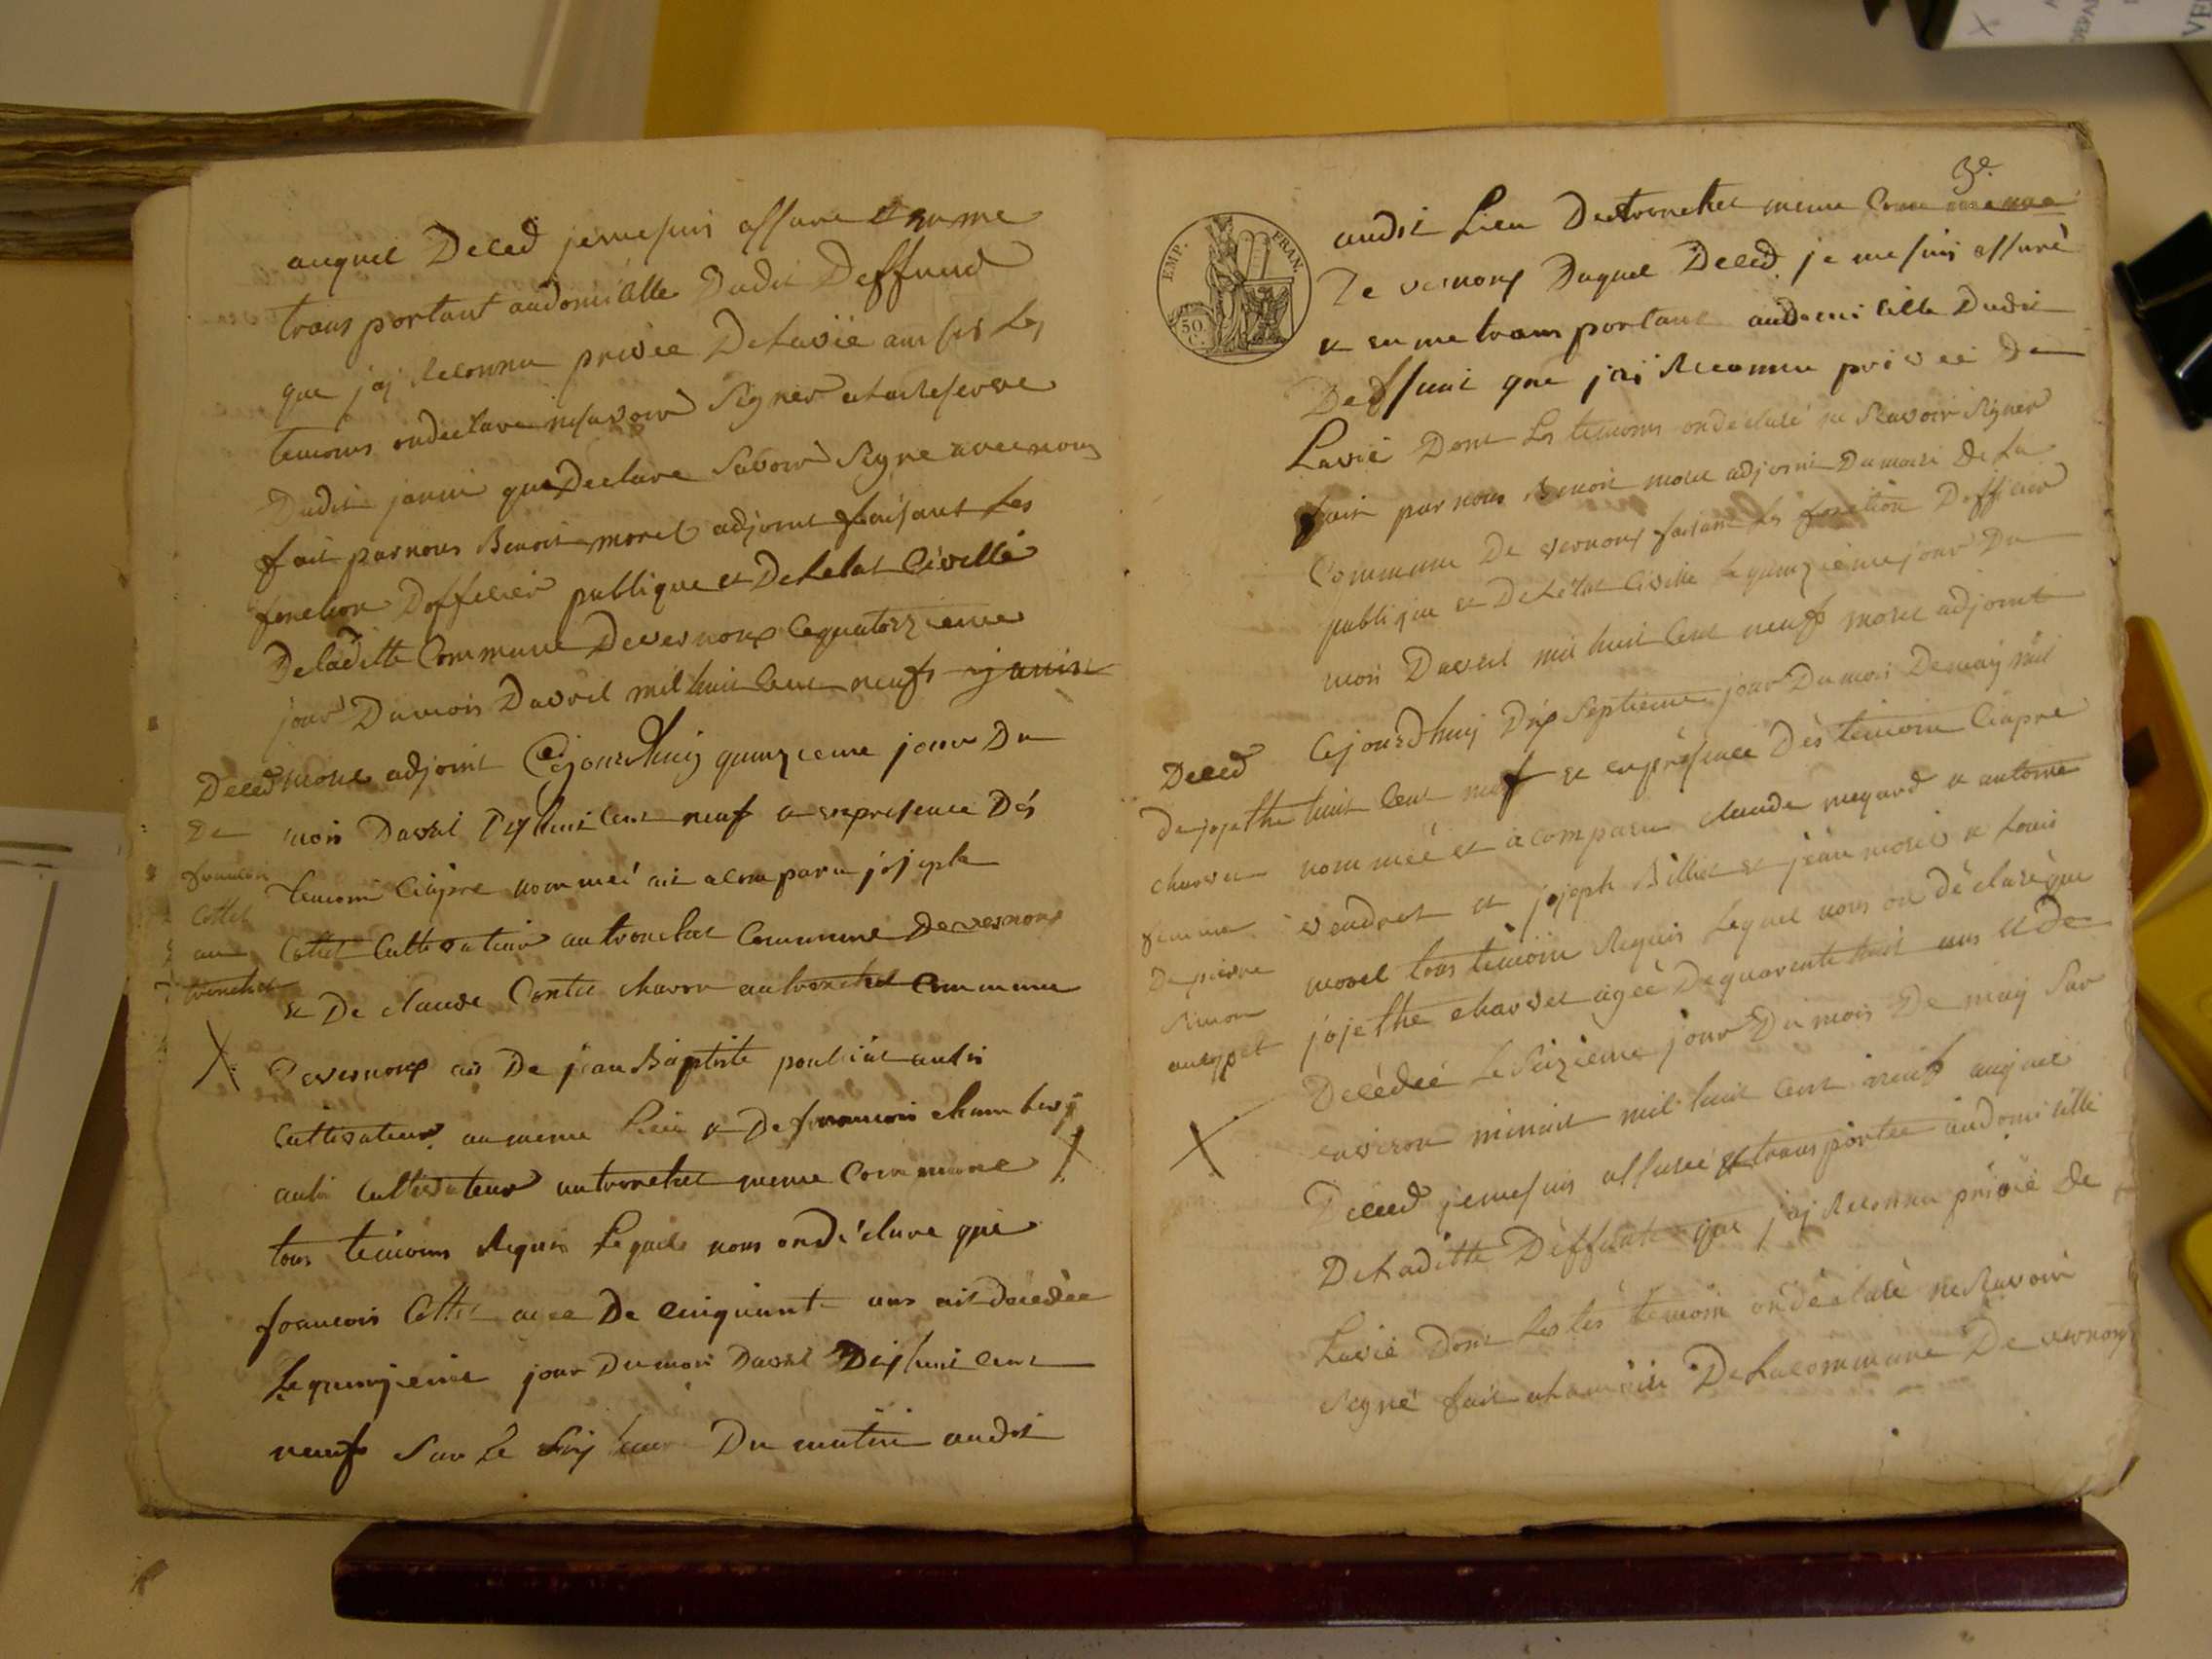 auquel Deced jemesuis assure et en me
trans portant audomicille Dudit Deffund
que jaj Reconnu privée Delavie aus ses Les
temoins ondeclare nesavoir Signer alareserve
Dudit janin qua Declare Savoir Signe avec nous
fait parnous Benoit morel adjoint faisant Les
fonction Dofficier publique et Deletat Civille
Deladitte Commune Devernoux Cequatorzieme
jour Dumois Davril mil huit Cent neuf janin
Deced morel adjoint Cejourdhuy quinzieme jour Du
De mois Davril Dix huit Cent neuf et enpresence Dés
francois temoin Ciapre nommé ait acomparu joseph
Cottet Cottet Cultivateur autronchet Commune Devernoux
au
tronchet et De claude Contet charon autronchet Commune
X Devernoux et De jean Baptiste ausi
Cultivateur aumeme Lieu et Defrancois
ausi Cultivateur autronchet meme Commune X
tous temoins Requis Lequels nous ondéclare que
francois Cottet agee De Cinquante ans ait décédée
Le quinzieme jour Dumois Davril Dix huit Cent
neuf Sur Le Six heur Du matin audit
3e
EMP. FRAN.
50 C.
audit Lieu Detronchet meme Commune
De vernoux Duquel Deced je me suis assuré
et en me trans portant audomicille Dudit
Deffunt que jai Reconnu privée De
Lavie Dont Les temoins ondéclaré ne Scavoir Signer
fait par nous Benoit morel adjoint Dumaire De La
Commune De vernoux faisant Les fonction Dofficier
publique et Deletat Civille Le quinzième jour Du
mois Davril mil huit Cent neuf morel adjoint
Deced Cejourdhuy Dix Septieme jour Dumois Demay mil
De josethe huit Cent neuf et enprésence Dès temoin Ciapre
charvet nommée et acomparu claude megard et antoine
femme vendret et joseph Billiet et jean morel et Louis
De pierre morel tous témoin Requis Lequel nous on déclaré que
Simon josethe charvet agée Dequarente huit ans et De
Décédée Le Seizième jour Du mois De may Sur
X environ minuit mil huit Cent neuf auquel
Deced jemesuis assurée et transportée audomicille
Deladitte Deffunte que jaj Reconnu privée De
Lavie Dont Les témoin ondéclaré ne Savoir
Signé fait alamairie Delacommune De vernoux